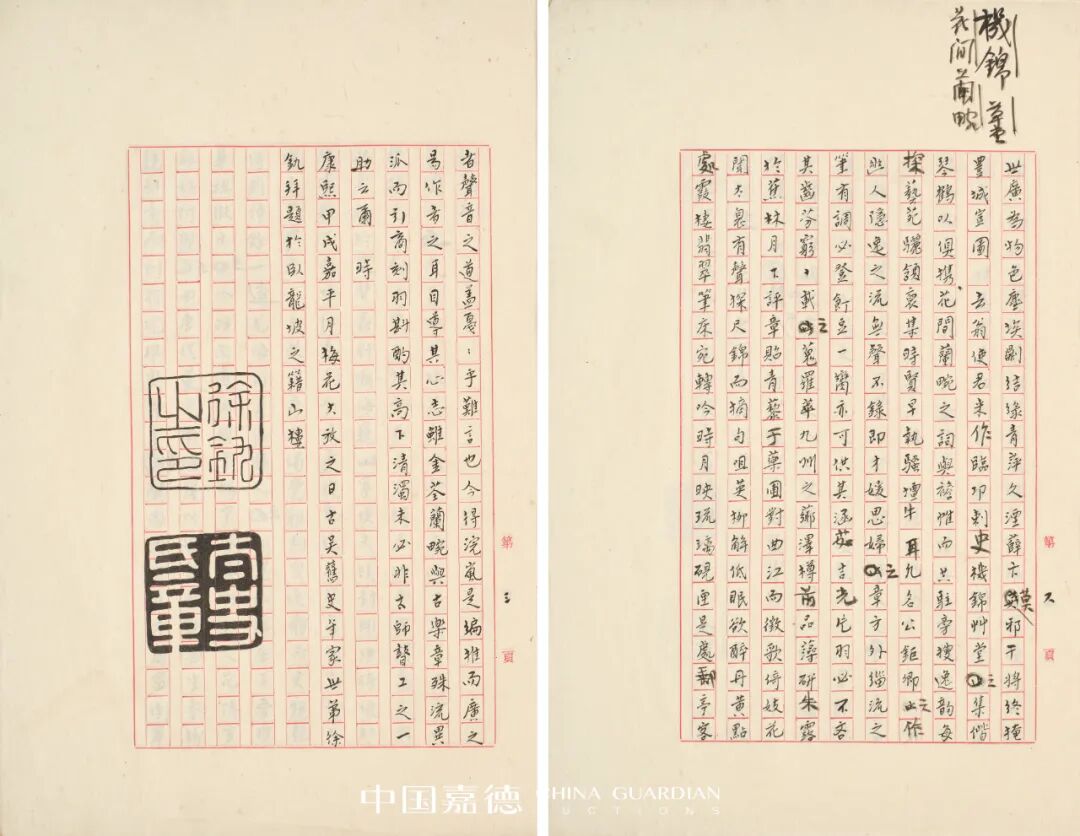 機錦堇
花间蘭畹
世廣為物色塵埃剔結緣青萍久湮薛卞莫邪干將終掩
豐城豈圖 去翁使君來作臨邛刺史機錦艸堂之集偕
琴鶴以俱攜花間蘭畹之詞與襜帷而共駐旁搜逸韻每
探藝苑驪頷裒某時賢早執騷壇牛耳凡名公鉅卿之作
幽人隱逸之流無聲不錄即才媛思婦之章方外緇流之
筆有調必登飣豆一臠亦可供其涵茹吉光片羽必不吝
其齒芬窮、載之蒐羅華九州之薌澤樽前品藻研朱露
於蕉林月下評章貽青藜于藥圃對曲江而徵歌倚妓花
聞太息有聲探尺錦而摘句咀英柳解低眠欲醉丹黃點
處霞棲翡翠筆床宛轉吟時月映琉璃硯匣是處郵亭客
第 頁
者聲音之道蓋戛、乎難言也今得浣嵐是編推而廣之
易作者之耳目導其心志雖金荃蘭畹與古樂章殊流異
派而引商刻羽斟酌其高下清濁未必非古師瞽工之一
助云爾時
康熙甲戌嘉平月梅花大放之日古吳舊史年家世弟徐
釚拜題於臥龍坡之籍山樓
徐釚之印
太史氏章
第三頁
中国嘉德 CHINA GUARDIAN
AUCTIONS